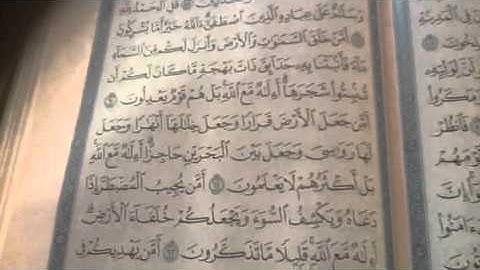 قُلِ ٱلْحَمْدُ لِلَّهِ
وَسَلَٰمٌ عَلَىٰ عِبَادِهِ ٱلَّذِينَ ٱصْطَفَىٰٓ ءَآللَّهُ خَيْرٌ أَمَّا يُشْرِكُونَ
أَمَّنْ خَلَقَ ٱلسَّمَٰوَٰتِ وَٱلْأَرْضَ وَأَنزَلَ لَكُم مِّنَ ٱلسَّمَآءِ
مَآءً فَأَنۢبَتْنَا بِهِۦ حَدَآئِقَ ذَاتَ بَهْجَةٍ مَّا كَانَ لَكُمْ أَن
تُنۢبِتُوا۟ شَجَرَهَآ أَءِلَٰهٌ مَّعَ ٱللَّهِ بَلْ هُمْ قَوْمٌ يَعْدِلُونَ ٦٠
أَمَّن جَعَلَ ٱلْأَرْضَ قَرَارًا وَجَعَلَ خِلَٰلَهَآ أَنْهَٰرًا وَجَعَلَ
لَهَا رَوَٰسِىَ وَجَعَلَ بَيْنَ ٱلْبَحْرَيْنِ حَاجِزًا أَءِلَٰهٌ مَّعَ ٱللَّهِ
بَلْ أَكْثَرُهُمْ لَا يَعْلَمُونَ ٦١ أَمَّن يُجِيبُ ٱلْمُضْطَرَّ إِذَا
دَعَاهُ وَيَكْشِفُ ٱلسُّوٓءَ وَيَجْعَلُكُمْ خُلَفَآءَ ٱلْأَرْضِ
أَءِلَٰهٌ مَّعَ ٱللَّهِ قَلِيلًا مَّا تَذَكَّرُونَ ٦٢ أَمَّن يَهْدِيكُمْ فِى